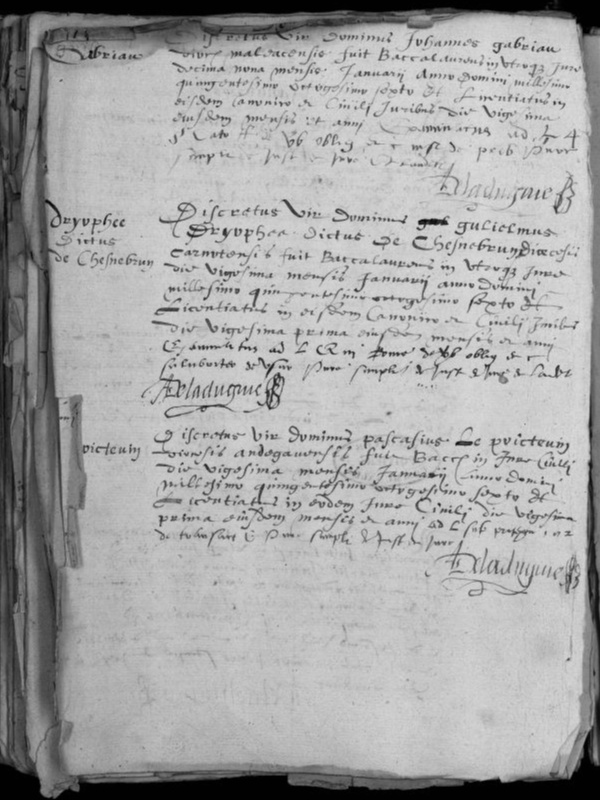 Gabriau
Discretus vir dominus Johannes gabriau
dioces maleacensis fuit Baccalaureus in utroqz Jure
decima nona mensis Januarii anno domini millesimo
quingentesimo octogesimo sexto et Licentiatus in
eisdem canonico et Civili Juribus die vigesima
eiusdem mensis et anni Examinatus ad
oblig et c
simplr et Just
Deladugnie
Dryophee
Dictus
de Chesnebrun
Discretus vir dominus gulielmus
Dryophea dictus De Chesnebrun dioecesis
Carnotensis fuit Baccalaureus in utroqz Jure
die vigesima mensis Januarii anno domini
millesimo quingentesimo octogesimo sexto et
Licentiatus in eisdem Canonico et Civili Juribus
die vigesima prima eiusdem mensis et anni
Examinatus ad L oblig et c
de usur simpli de Just et Jure
Deladugnie
poicteuin
Discretus vir dominus pascasius Le poicteuin
diocesis andegavensis fuit Bacc in Jure Civili
die vigesima mensis Januarii Anno domini
millesimo quingentesimo octogesimo sexto et
Licentiatus in eodem Jure Civili die vigesima
prima eiusdem mensis et anni ad L
de transact simpli de Just et Jure
Deladugnie